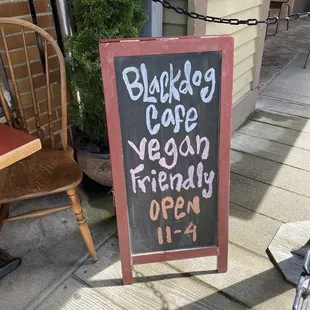 BlackDog
Cafe
vegan
Friendly
OPEN
11-4